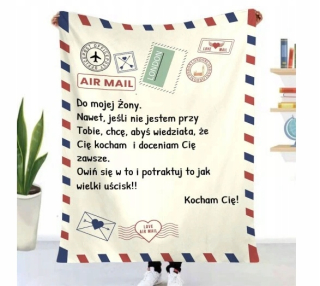 AIR MAIL
LONDON
LOVE MAIL
Do mojej Żony.
Nawet, jeśli nie jestem przy
Tobie, chcę, abyś wiedziała, że
Cię kocham i doceniam Cię
zawsze.
Owiń się w to i potraktuj to jak
wielki uścisk!!
Kocham Cię!
LOVE
AIR MAIL